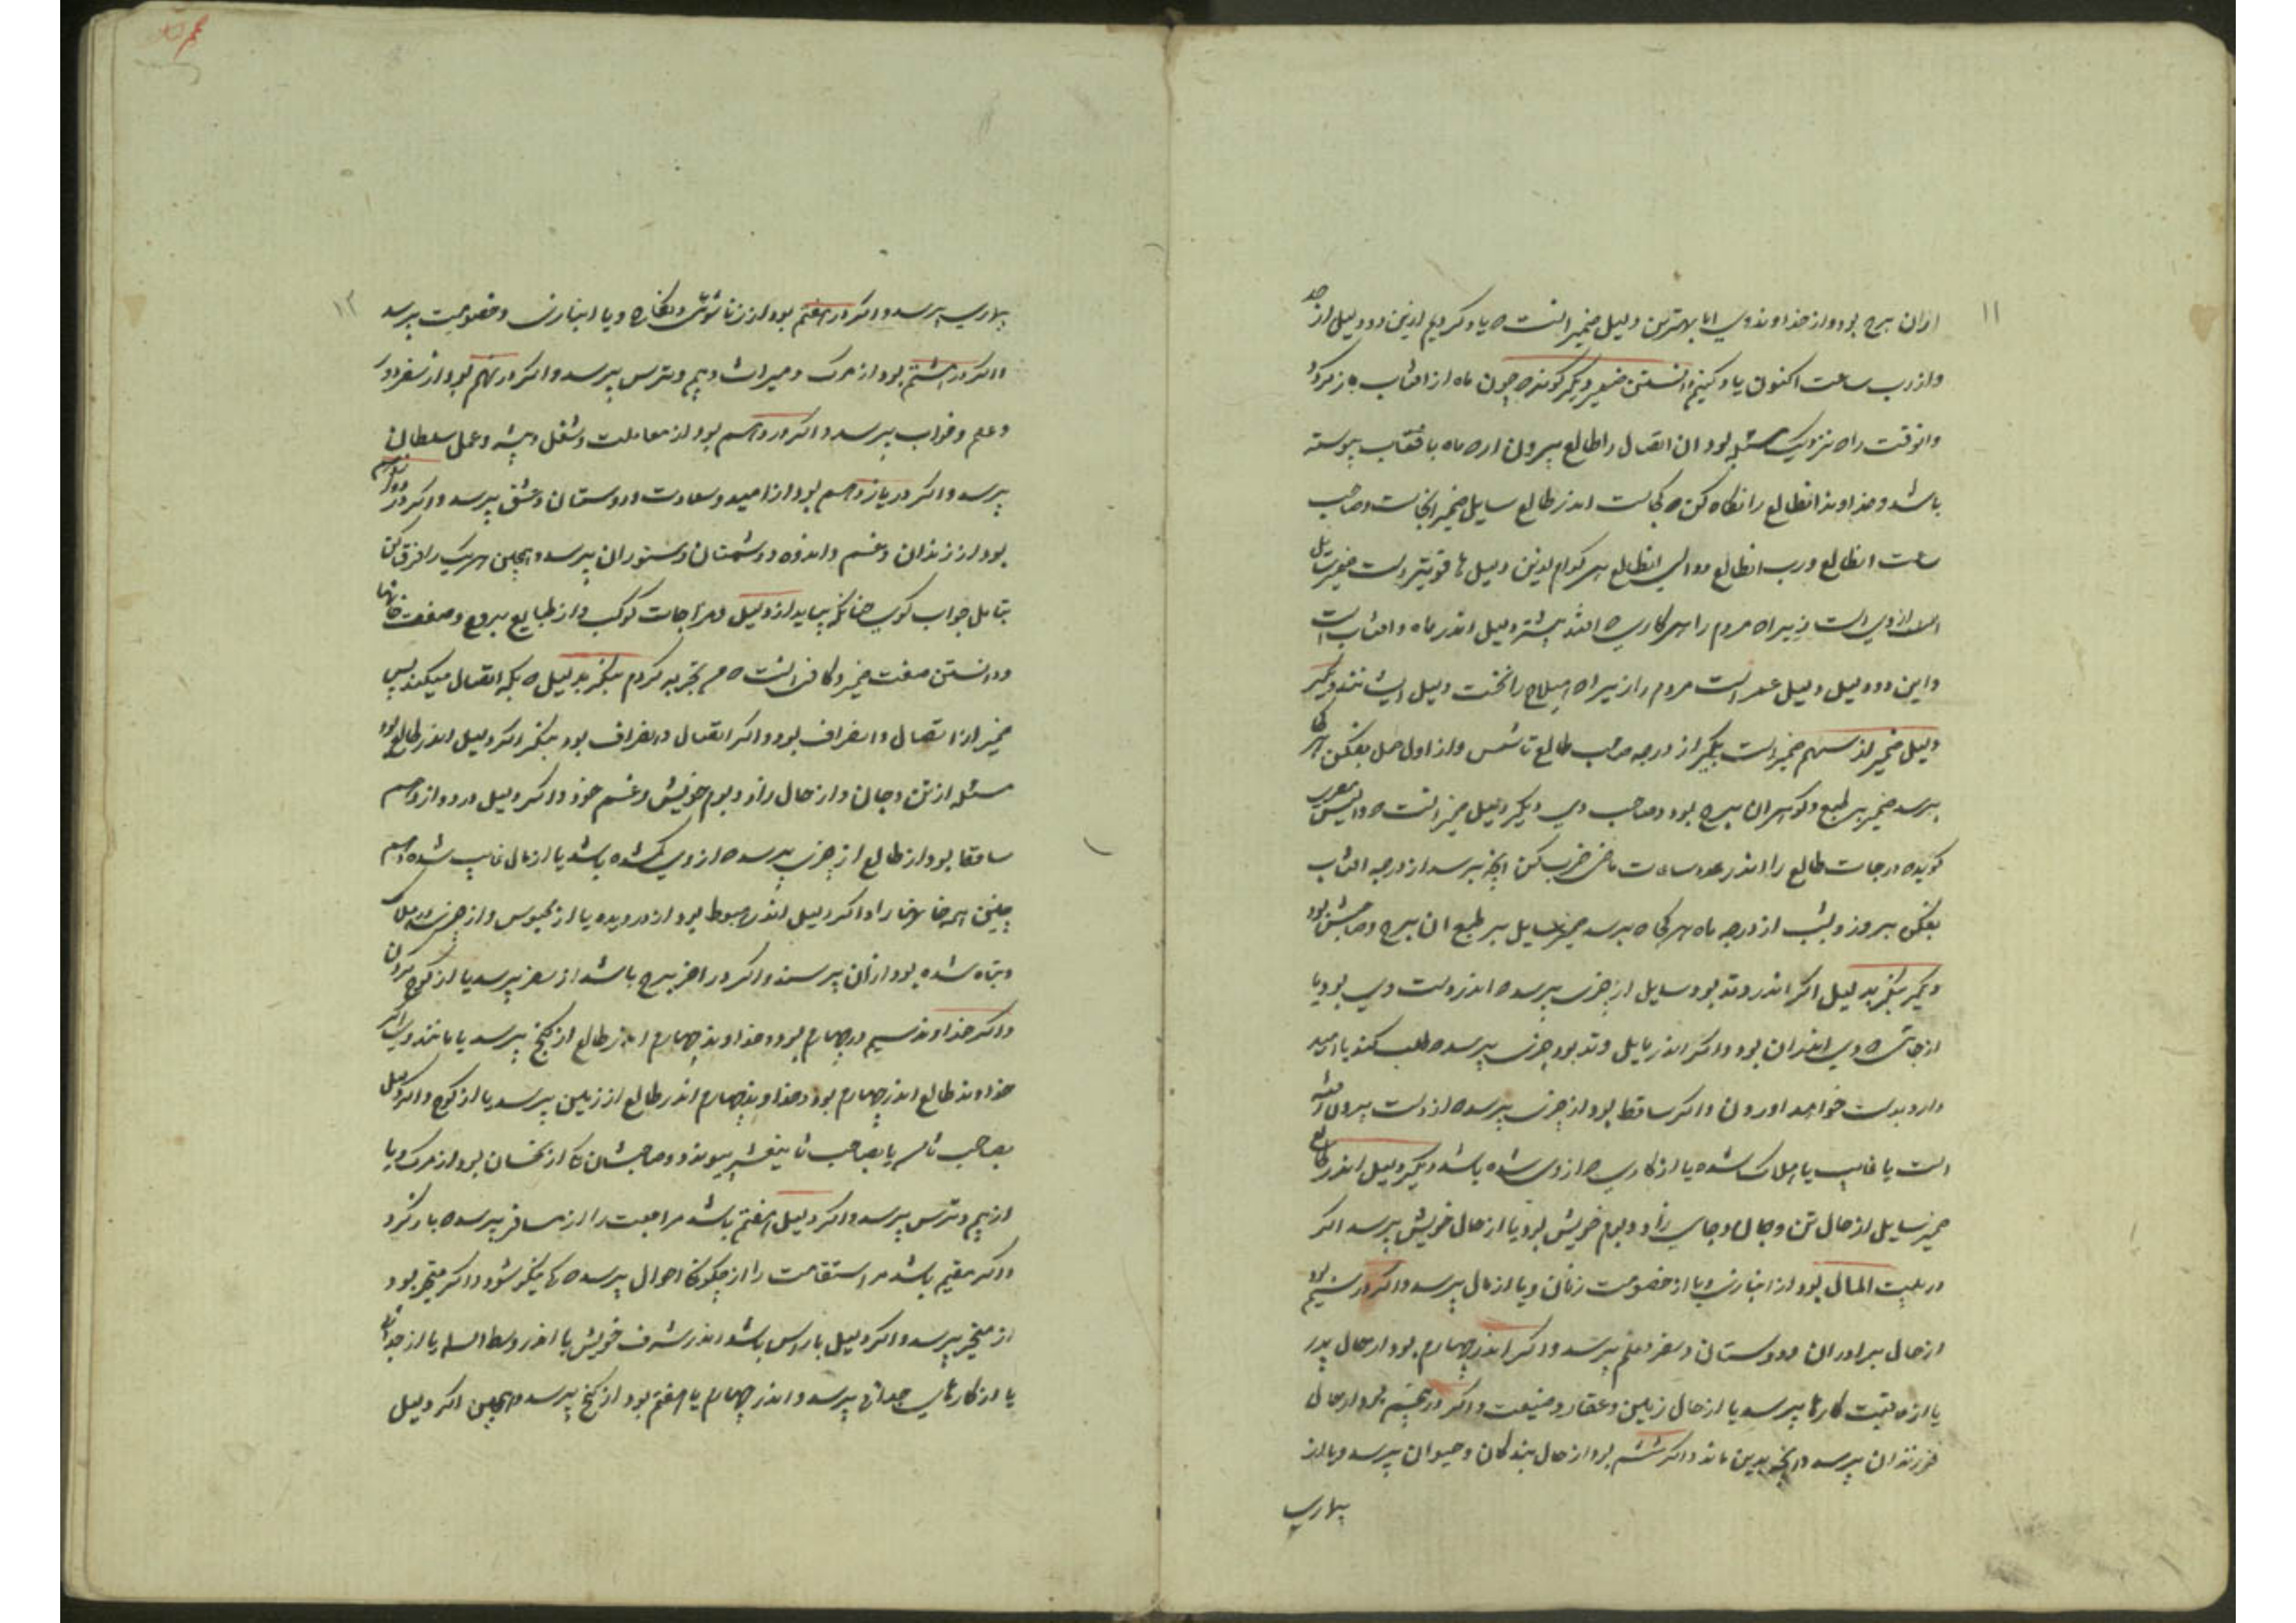 ۱۱
ازان برج بود و از خداوند وی اما بهترین دلیل ضمیر انست که یاد کردیم ازین دو دلیل از حد
و از رب ساعت اکنون یاد کنیم دانستن ضمیر دیگر گوند که چون ماه از افتاب باز گردد
وانوقت راه نزدیک مسئله بود ان اتصال را طالع بیرون ار که ماه بافتاب پیوسته
باشد و خداوند انطالع را نگاه کن که کجاست اندر طالع سایل ضمیر انجاست و صاحب
ساعت انطالع و رب انطالع و والی انطالع هر کدام ازین دلیل ها قویتر است ضمیر سایل
از وی است زیراه مردم را هر کاری که افتد بیشتر دلیل اندر ماه و افتاب است
و این دو دلیل دلیل است مردم را زیراه را نخست دلیل دیگر
دلیل ضمیر از سهم ضمیر است بگیر از درجه صاحب طالع تا شمس و از اول حمل بفکن هر کجا
برسد ضمیر بر طبع و گوهر ان برج بود و صاحب وی دیگر دلیل ضمیر انست که
گویند درجات طالع را اندر عدد ساعات ماضی ضرب کن انچه برسد از درجه افتاب
بفکن بروز و بشب از درجه ماه هر کجا که برسد ضمیر سایل بر طبع ان برج و صاحبش بود
دیگر بنگر بدلیل اگر اندر وتد بود سایل از چیزی پرسد که اندر دست وی بود یا
از جائی که وی اندران بود و اگر اندر مایل وتد بود چیزی پرسد که طلب کند یا امید
دارد بدست خواهد اوردن و اگر ساقط بود از چیزی پرسد که از دست بیرون رفته
است یا غایب یا هلاک شده یا از کاری که از وی شده باشد دیگر دلیل اندر طالع
ضمیر سایل از حال تن و جان و جای زاد و بوم خویش بود یا از حال خویش پرسد اگر
در بیت المال بود از انبازی و یا از خصومت زنان و یا از مال پرسد و اگر در سیم بود
از حال برادران و دوستان و سفر و علم پرسد و اگر اندر چهارم بود از حال پدر
یا از عاقبت کارها پرسد یا از حال زمین و عقار و ضیعت و اگر در پنجم بود از حال
فرزندان پرسد و انچه بدین ماند و اگر ششم بود از حال بندگان و حیوان پرسد و یا از
بیماری
۱۲
بیماری پرسد و اگر در هفتم بود از زناشوئی و نکاح و یا انبازی و خصومت پرسد
و اگر در هشتم بود از مرک و میراث و بیم و ترس پرسد و اگر در نهم بود از سفر دور
و علم و خواب پرسد و اگر در دهم بود از معاملت و شغل و پیشه و عمل سلطان
پرسد و اگر در یازدهم بود از امید و سعادت و دوستان و عشق پرسد و اگر در دوازدهم
بود از زندان و غم و اندوه و دشمنان و ستوران پرسد و همچنین هر یک را فرق کن
بتامل جواب گوی چنانکه بیاید از دلیل و مزاجات کوکب و از طبایع بروج و صفت خانها
و دانستن صفت ضمیر و کافی انست که من تجربه کردم بنگر بدلیل که بکه اتصال میکند پس
ضمیر از اتصال و انصراف بود و اگر اتصال و انصراف بود بنگر اگر دلیل اندر طالع بود
مسئله از تن و جان و از حال زاد و بوم خویش و غم خود و اگر دلیل در دوازدهم
ساقط بود از طالع از چیزی پرسد که از وی گم شده باشد یا از مال غایب شده و هم
چنین همه خانها را و اگر دلیل اندر هبوط بود از دزدیده یا از محبوس و از چیزی
و تباه شده بود ازان پرسد و اگر در اخر برج باشد از سفر پرسد یا از کوچ کردن
و اگر خداوند سیم در چهارم بود و خداوند چهارم اندر طالع از گنج پرسد یا مانند وی اگر
خداوند طالع اندر چهارم بود و خداوند چهارم اندر طالع از زمین پرسد یا از کوچ و اگر دلیل
بصاحب ثامن یا بصاحب ثانی عشر پیوندد و صاحبشان از نحسان بود از مرک و یا
از بیم و ترس پرسد و اگر دلیل هفتم باشد مراجعت را از مسافر پرسد که باز گردد
و اگر مقیم باشد مر استقامت را از چگونگی احوال پرسد که نیکو شود و اگر متحیر بود
از متحیر پرسد و اگر دلیل با راس باشد اندر شرف خویش یا اندر وسط السما یا از خدائی
یا از کارهای خدائی پرسد و اندر چهارم یا هفتم بود از گنج پرسد و همچنین اگر دلیل